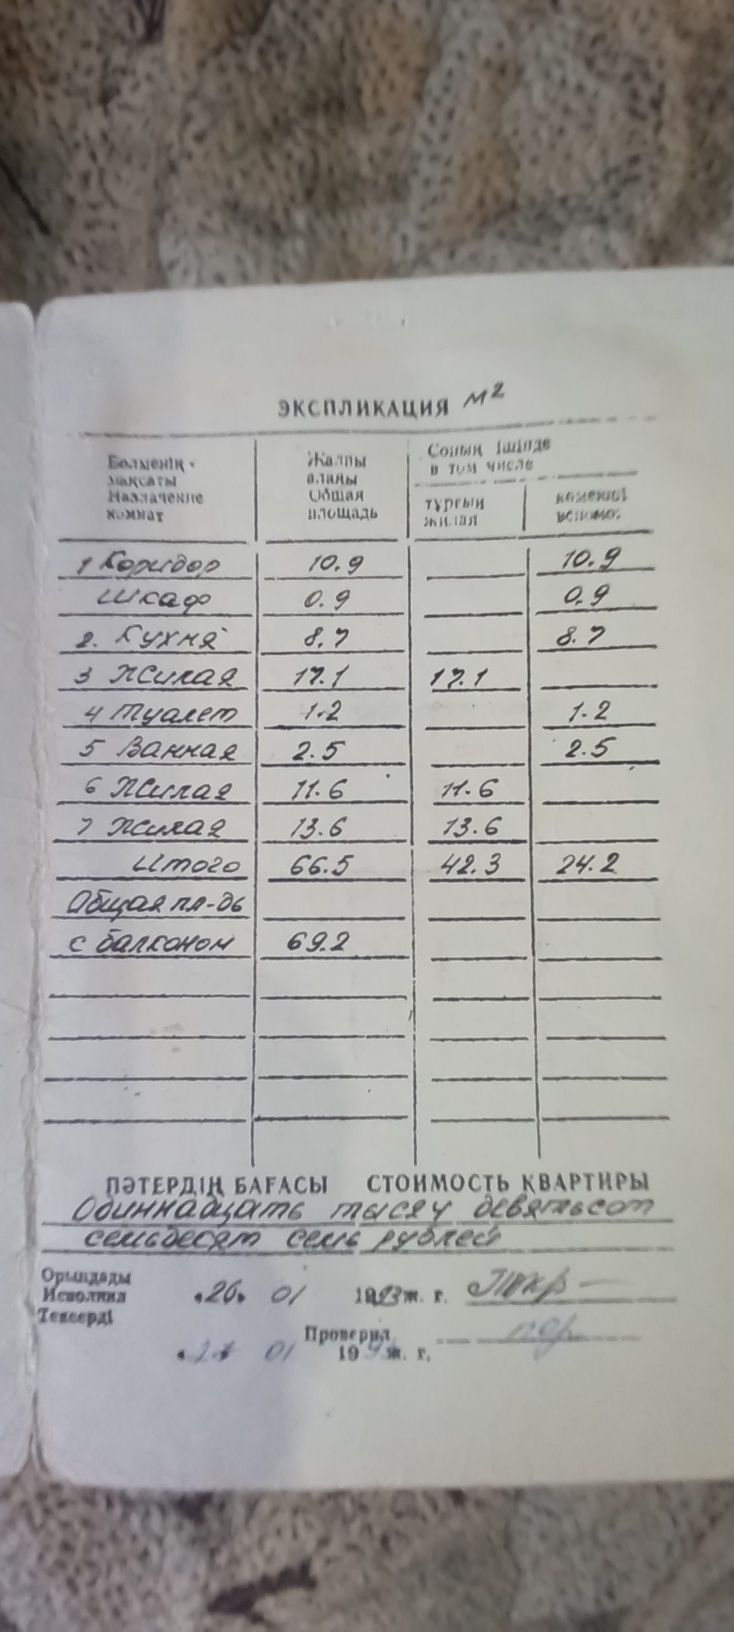 ЭКСПЛИКАЦИЯ м²
Бөлменің мақсаты Назначение комнат
Жалпы алаңы Общая площадь
Соның ішінде в том числе
тұрғын жилая
көмекші вспомог
1 Коридор 10.9 10.9
шкаф 0.9 0.9
2. Кухня 8.7 8.7
3 Жилая 17.1 17.1
4 Туалет 1.2 1.2
5 Ванная 2.5 2.5
6 Жилая 11.6 11.6
7 Жилая 13.6 13.6
Итого 66.5 42.3 24.2
Общая пл-дь
с балконом 69.2
ПӘТЕРДІҢ БАҒАСЫ СТОИМОСТЬ КВАРТИРЫ
Одиннадцать тысяч девятьсот
семьдесят семь рублей
Орындады
Исполнил «26» 01 1993 ж. г.
Тексерді
Проверил
01 19 ж. г.